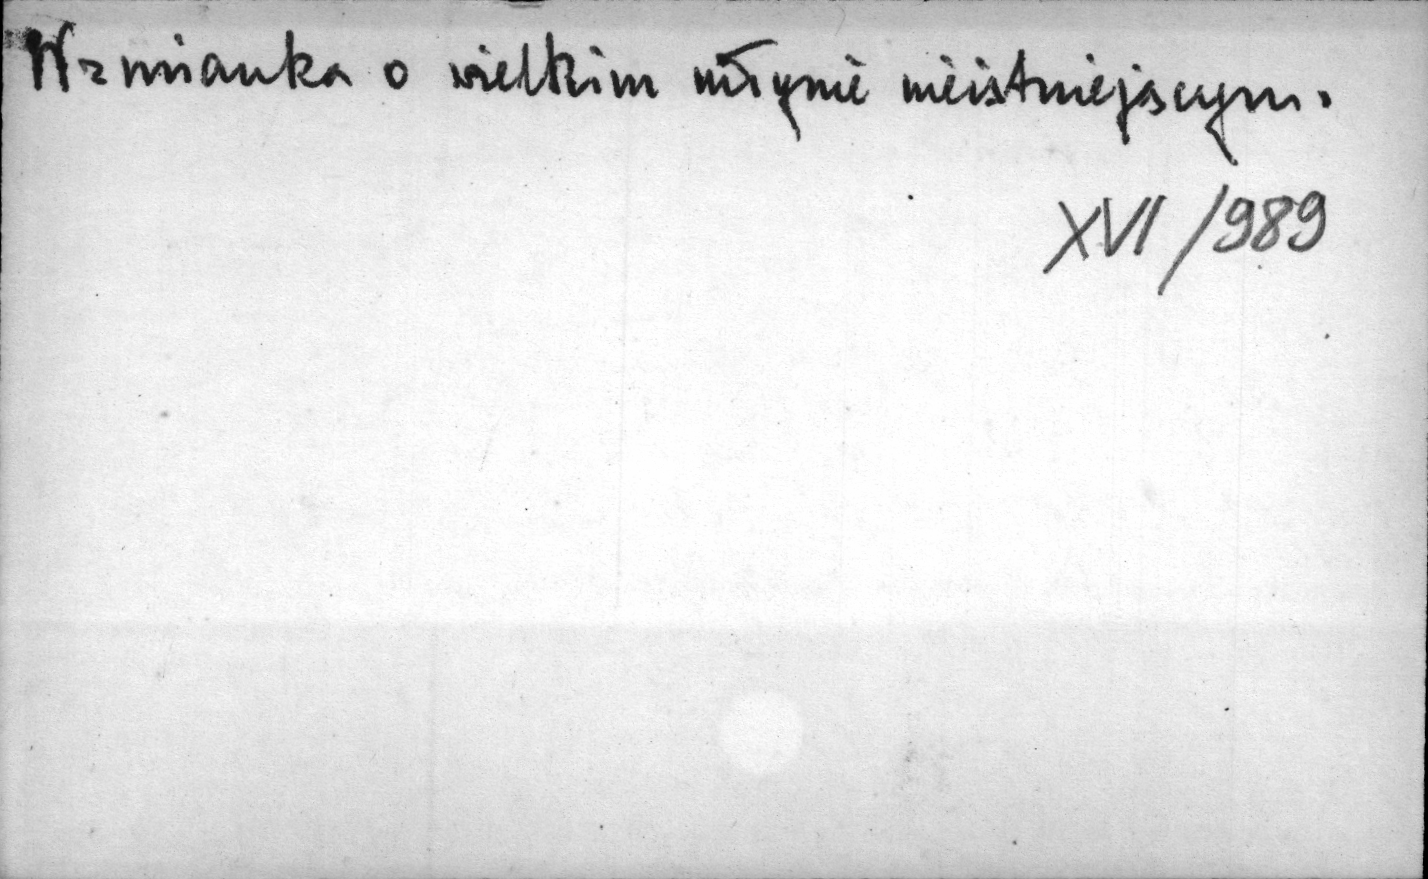 Wzmianka o wielkim młynie nieistniejącym.
XVI/989